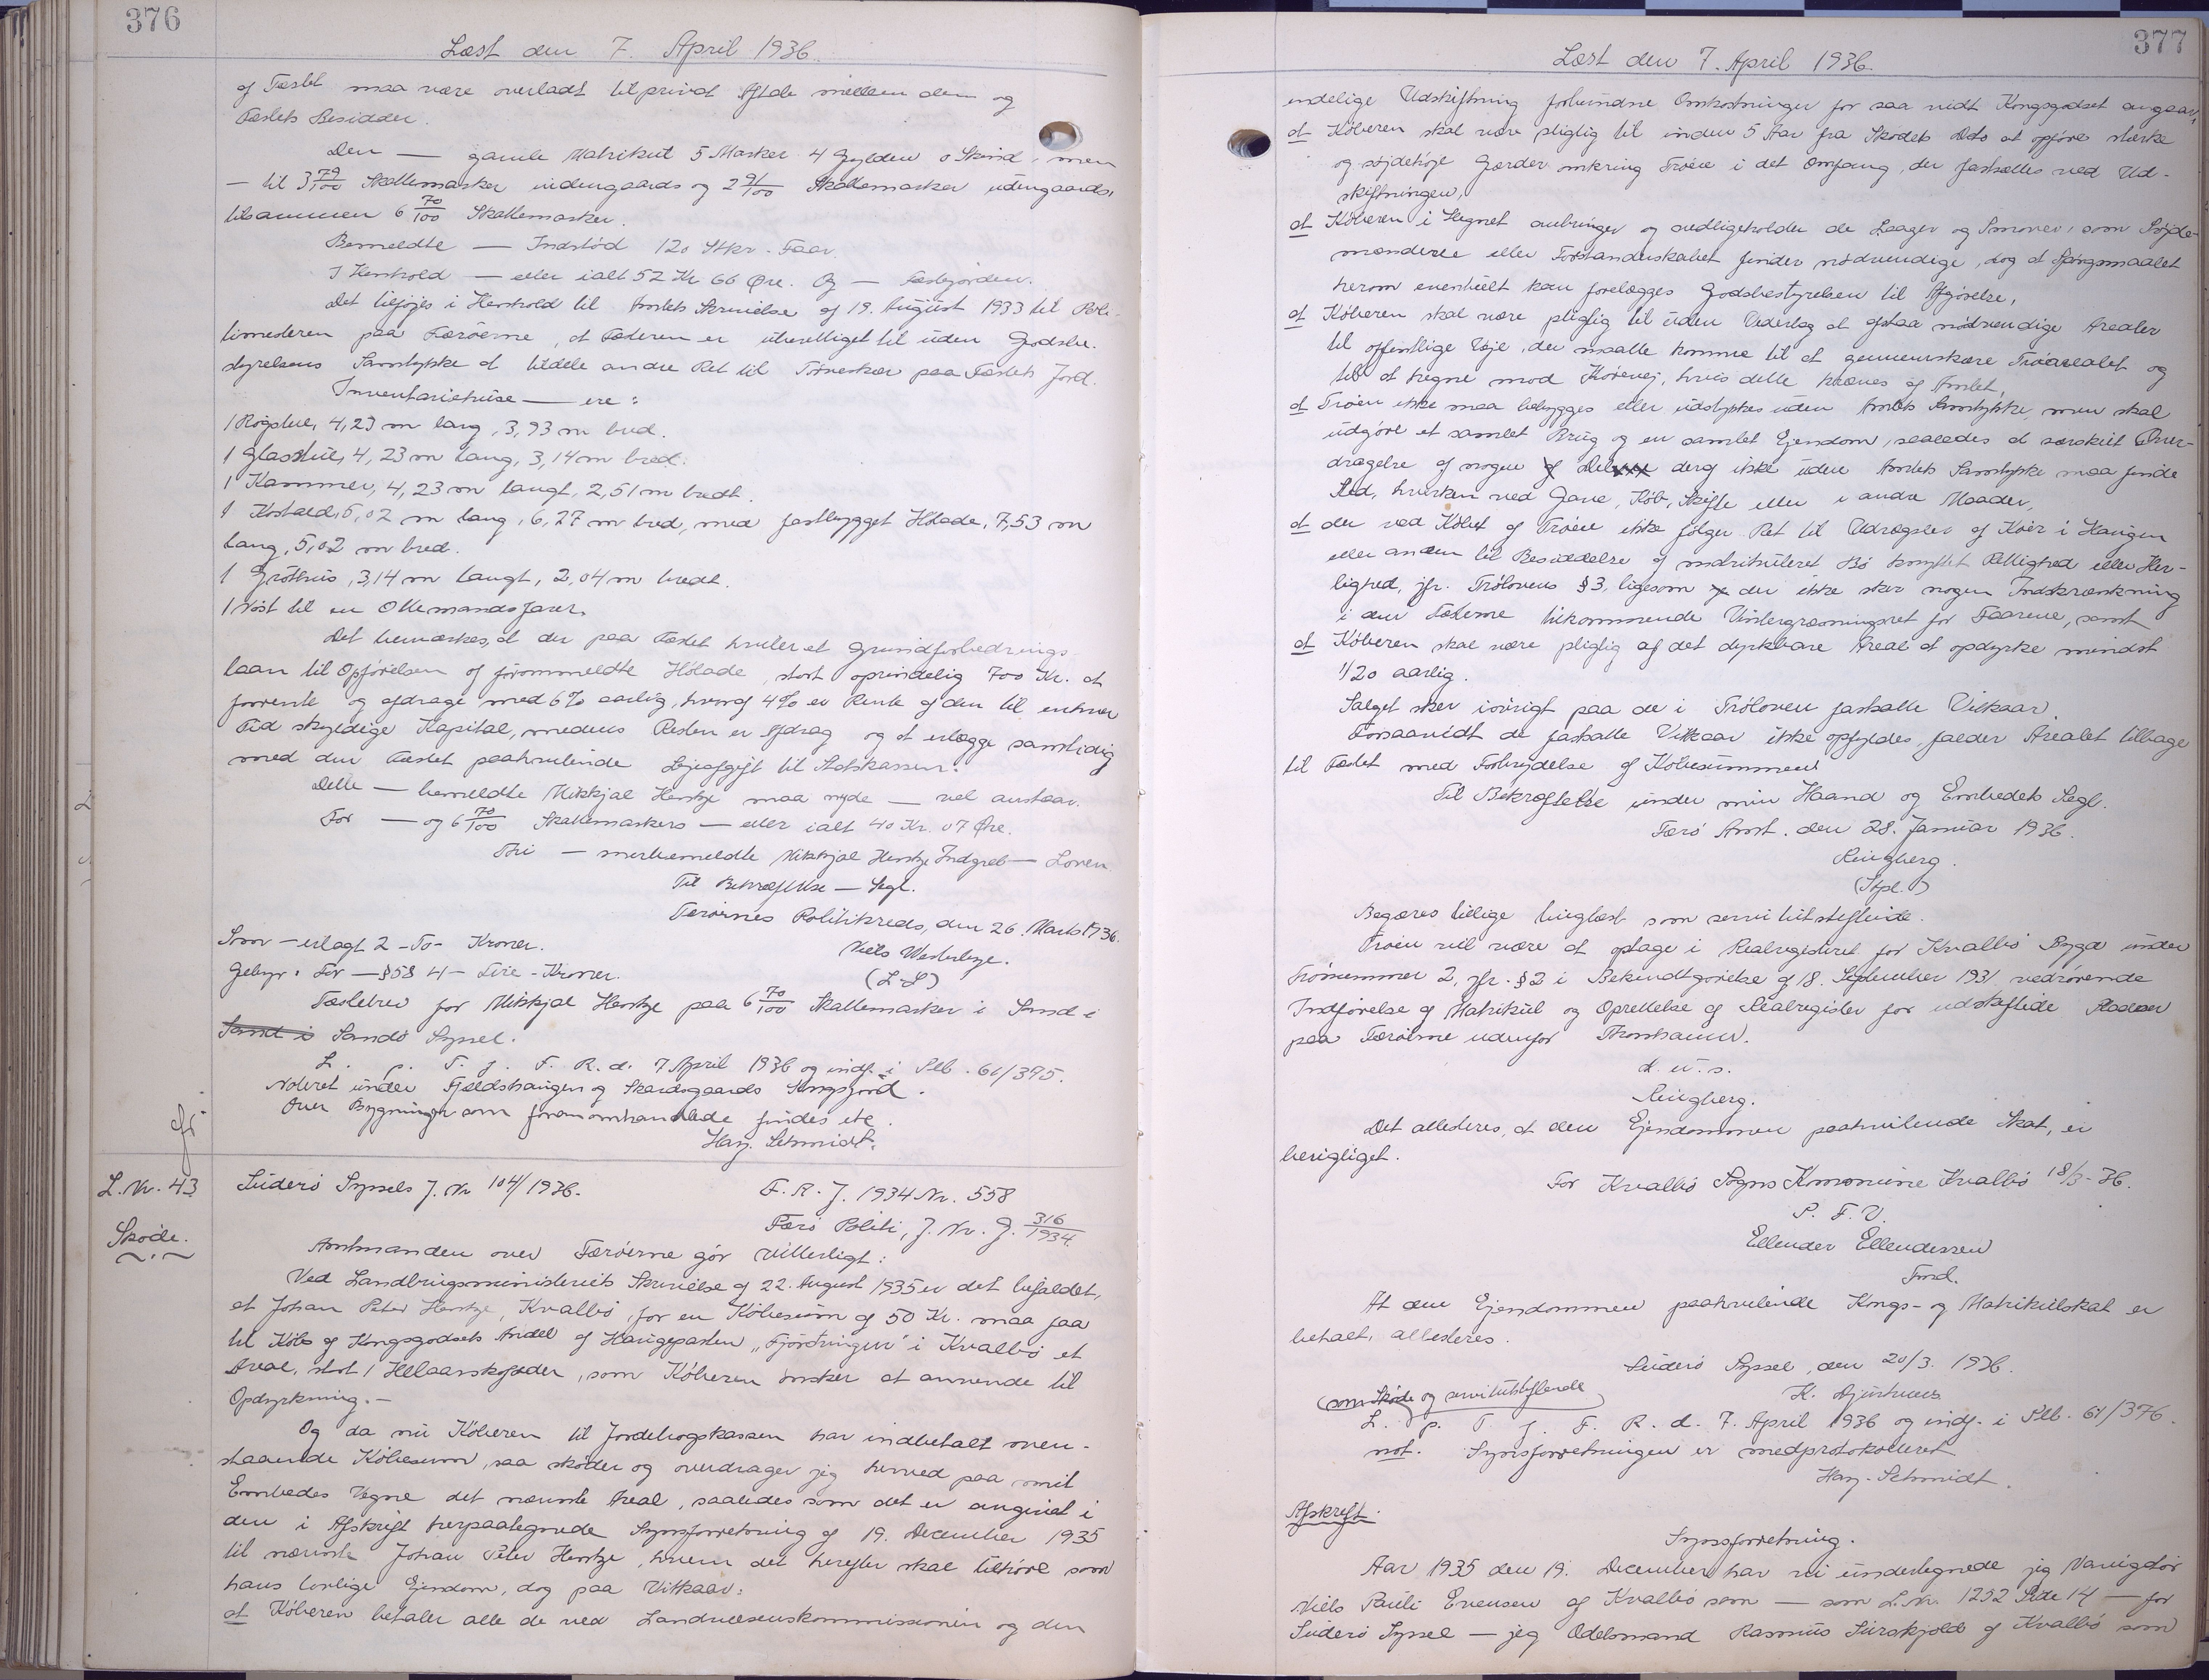 376
Læst den 7. April 1936.
af Fæstet maa være overladt til privat Aftale mellem dem og
Fæstets Besidder.
Den — gamle Matrikul 5 Marker 4 Gylden 0 Skind, men
— til 3 79/100 Skattemarker indengaards og 2 91/100 Skattemarker udengaards,
tilsammen 6 70/100 Skattemarker.
Bemeldte — Indstød 120 Stkr. Faar.
I Henhold — eller ialt 52 Kr. 66 Øre. Og — Fæstejorden.
Det tilføjes i Henhold til Amtets Skrivelse af 19. August 1933 til Poli-
timesteren paa Færøerne, at Fæsteren er uberettiget til uden Godsbe-
styrelsens Samtykke at tildele andre Ret til Tørveskær paa Fæstets Jord.
Inventariehuse — ere:
1 Røgstue, 4,23 m lang, 3,93 m bred.
1 Glasstue, 4,23 m lang, 3,14 m bred.
1 Kammer, 4,23 m langt, 2,51 m bredt.
1 Kostald, 5,02 m lang, 6,27 m bred, med fastbygget Hølade, 7,53 m
lang, 5,02 m bred.
1 Gróthus, 3,14 m langt, 2,04 m bredt.
1 Nøst til en Ottemandsfarer.
Det bemærkes, at der paa Fæstet hviler et Grundforbedrings-
laan til Opførelsen af forommeldte Hølade, stort oprindelig 700 Kr. at
forrente og afdrage med 6% aarlig, hvoraf 4% er Rente af den til enhver
Tid skyldige Kapital, medens Resten er Afdrag og at erlægge samtidig
med den Fæstet paahvilende Lejeafgift til Statskassen.
Dette — bemeldte Mikkjal Hentze maa nyde — vel anstaar.
For — og 6 70/100 Skattemarkers — eller ialt 40 Kr. 07 Øre.
Thi — merbemeldte Mikkjal Hentze Indgreb — Loven.
Til Bekræftelse — Segl.
Færøernes Politikreds, den 26. Marts 1936.
Som — erlagt 2 - To - Kroner.
Niels Westerbye.
Gebyr: For — § 58 4 - Fire - Kroner.
(L.S.)
Fæstebrev for Mikkjal Hentze paa 6 70/100 Skattemarker i Sand i
Sand i Sandø Syssel.
L. p. T. f. F. R. d. 7 April 1936 og indf. i Slb. 61/375.
Noteret under Fjældshaugen og Skardsgaards Kongsjord.
Over Bygninger som foranomhandlede findes ete.
Harj. Schmidt.
jfr.
L. Nr. 43
Skøde.
Suderø Syssels J. Nr 104/1936.
F. R. J. 1934 Nr. 558
Færø Politi, J. Nr. G. 316/1934.
Amtmanden over Færøerne gör vitterligt:
Ved Landbrugsministeriets Skrivelse af 22. August 1935 er det bifaldet,
at Johan Peter Hentze, Kvalbø, for en Købesum af 50 Kr. maa faa
til Køb af Kongsgodsets Andel af Haugeparten "Fjørðringur" i Kvalbø et
Areal, stort 1 Helaarskofoder, som Køberen ønsker at anvende til
Opdyrkning.-
Og da nu Køberen til Jordebogskassen har indbetalt oven-
staaende Købesum, saa skøder og overdrager jeg herved paa mit
Embedes Vegne det nævnte Areal, saaledes som det er angivet i
den i Afskrift herpaategnede Synsforretning af 19. December 1935
til nævnte Johan Peter Hentze, hvem det herefter skal tilhøre som
hans lovlige Ejendom, dog paa Vilkaar:
at Køberen betaler alle de ved Landvæsenskommissionen og den
377
Læst den 7. April 1936.
endelige Udskiftning forbundne Omkostninger for saa vidt Kongsgodset angaar,
at Køberen skal være pligtig til inden 5 Aar fra Skødets Dato at opføre stærke
og søjdehøje Gærder omkring Trøen i det Omfang, der fastsættes ved Ud-
skiftningen,
at Køberen i Hegnet anbringer og vedligeholder de Laager og Smover, som Søjde-
mændene eller Forstanderskabet finder nødvendige, dog at Spørgsmaalet
herom eventuelt kan forelægges Godsbestyrelsen til Afgørelse,
at Køberen skal være pligtig til uden Vederlag at afstaa nødvendige Arealer
til offentlige Veje, der maatte komme til at gennemskære Trøarealet og
til at hegne mod Kørevej, hvis dette kræves af Amtet,
at Trøen ikke maa bebygges eller udstykkes uden Amtets Samtykke, men skal
udgøre et samlet Brug og en samlet Ejendom, saaledes at særskilt Over-
dragelse af nogen Del deraf ikke uden Amtets Samtykke maa finde
Sted, hverken ved Gave, Køb, Skifte eller i andre Maader,
at der ved Købet af Trøen ikke følger Ret til Udrægsler af Køer i Haugen
eller anden til Besiddelse af matrikuleret Bø knyttet Rettighed eller Her-
lighed, jfr. Trølovens § 3, ligesom der ikke sker nogen Indskrænkning
i den Fæsterne tilkommende Vintergræsningsret for Faarene, samt
at Køberen skal være pligtig af det dyrkbare Areal at opdyrke mindst
1/20 aarlig.
Salget sker iøvrigt paa de i Trøloven fastsatte Vilkaar.
Forsaavidt de fastsatte Vilkaar ikke opfyldes, falder Arealet tilbage
til Fæstet med Fortrydelse af Købesummen.
Til Bekræftelse under min Haand og Embedets Segl.
Færø Amt. den 28. Januar 1936.
Ringberg.
(Stpl.)
Begæres tillige tinglæst som servitutstiftende.
Trøen vil være at optage i Realregistret for Kvalbø Bygd under
Trønummer 2, jfr. § 2 i Bekendtgørelse af 18. September 1931 vedrørende
Indførelse af Matrikul og Oprettelse af Realregister for udskiftede Pladser
paa Færøerne udenfor Thorshavn.
d. u. s.
Ringberg.
Det attesteres, at den Ejendommen paahvilende Skat, er
berigtiget.
For Kvalbø Sogns Kommune Kvalbø 18/3-36.
P. F. V.
Ellendur Ellendersen
Fmd.
At den Ejendommen paahvilende Kongs- og Matrikulskat er
betalt, attesteres.
Suderø Syssel, den 20/3. 1936.
K. Djurhuus
(som Skøde og servitutstiftende)
L. p. T. f. F. R. d. 7. April 1936 og indf. i Slb. 61/376.
not. Synsforretningen er medprotokolleret.
Harj. Schmidt.
Afskrift.
Synsforretning.
Aar 1935 den 19. December har vi undertegnede jeg Varigdør
Niels Pauli Evensen af Kvalbø som — som L. Nr. 1252 Side 14 — for
Suderø Syssel — jeg Odelsmand Rasmus Surskjold af Kvalbø som